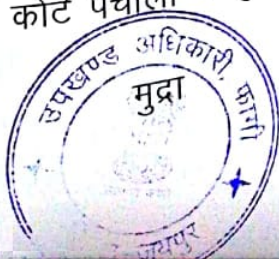 कोट पंचाली
उपखण्ड अधिकारी, फागी
मुद्रा
जयपुर